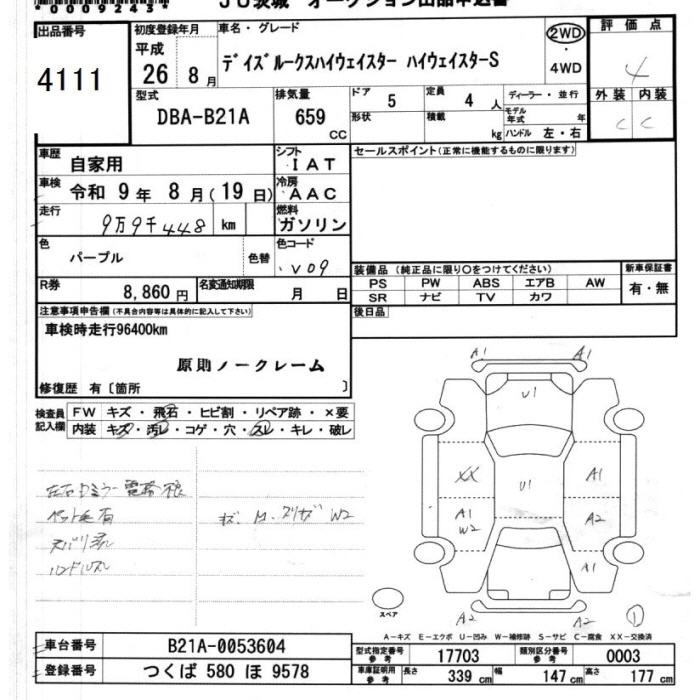 00092243
JU茨城 オークション出品申込書
出品番号
4111
初度登録年月
平成
26 8月
車名・グレード
デイズルークスハイウェイスター ハイウェイスターS
2WD
・
4WD
評価点
4
外装 内装
C C
型式
DBA-B21A
排気量
659
CC
ドア 5
定員 4 人
形状
積載 kg
ディーラー・並行
モデル年式 年
ハンドル 左・右
車歴
自家用
シフト
IAT
車検
令和 9年 8月(19日)
冷房
AAC
走行
9万9千448 km
燃料
ガソリン
色
パープル
色替
色コード
V09
R券
8,860円
名変通知期限
月 日
セールスポイント(正常に機能するものに限ります)
装備品 (純正品に限り○をつけてください)
PS PW ABS エアB AW
SR ナビ TV カワ
新車保証書
有・無
後日品
注意事項申告欄(不具合内容等は具体的に記入して下さい)
車検時走行96400km
原則ノークレーム
修復歴 有〔箇所 〕
検査員記入欄
FW キズ・飛石・ヒビ割・リペア跡・×要
内装 キズ・汚レ・コゲ・穴・スレ・キレ・破レ
ペット毛有
ハンドルスレ
W2
A1 A1
U1
XX U1 A1
A1 W2 A2
A1
A2 A2
スペア
1
A-キズ E-エクボ U-凹み W-補修跡 S-サビ C-腐食 XX-交換済
車台番号
B21A-0053604
登録番号
つくば 580 ほ 9578
型式指定番号 参考
17703
類別区分番号 参考
0003
車庫証明用 参考
長さ 339 cm
幅 147 cm
高さ 177 cm